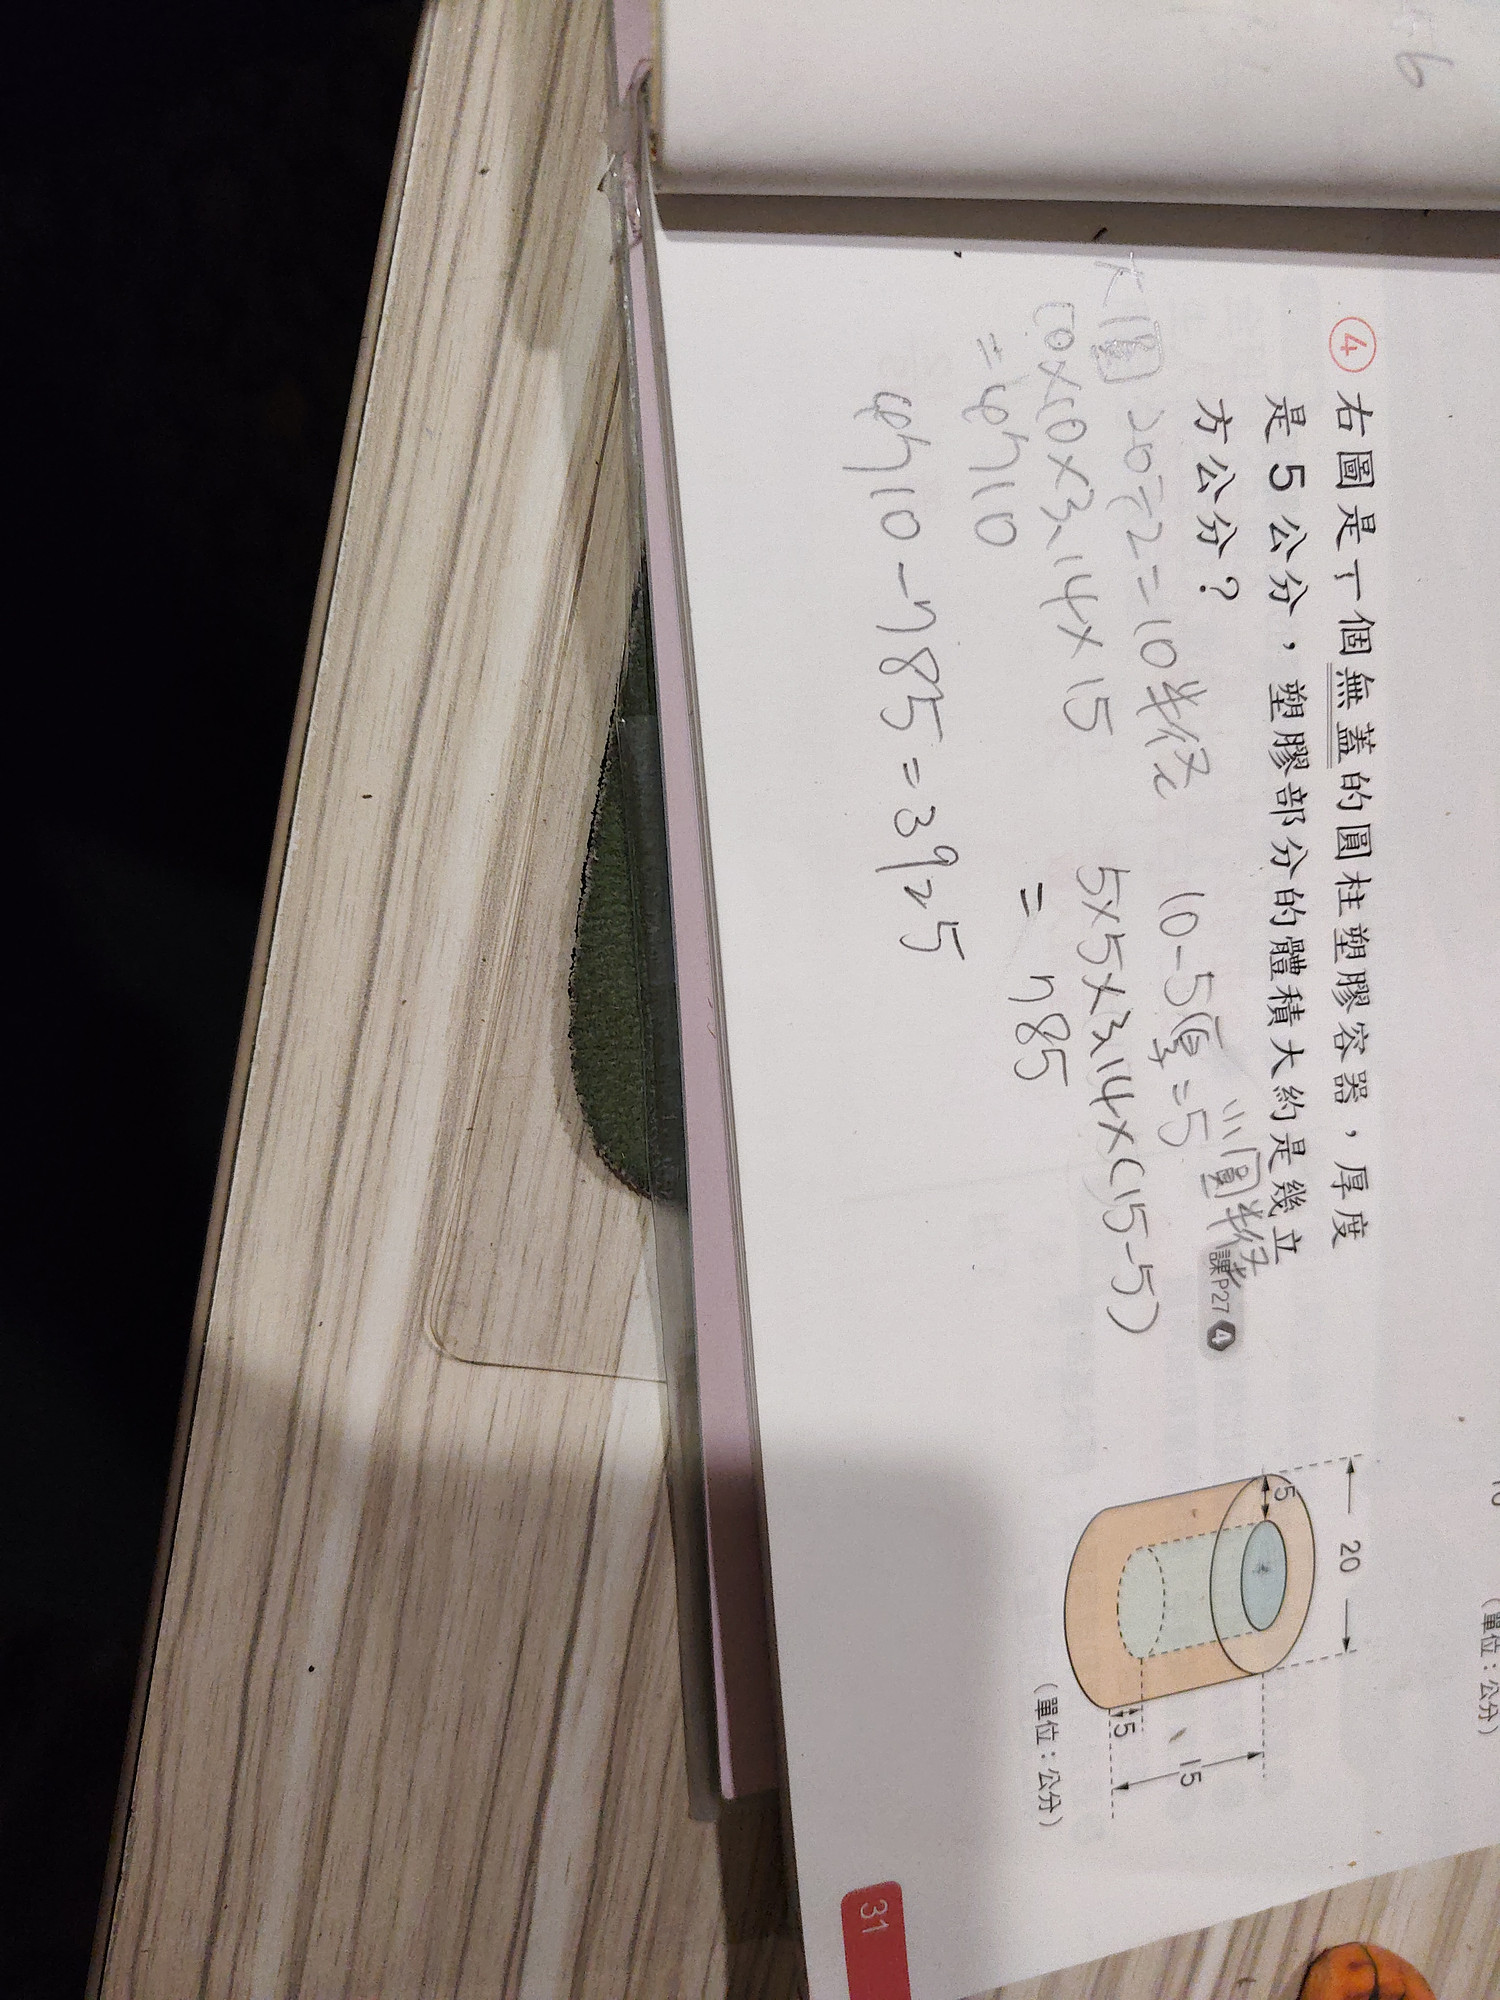 6
④ 右圖是一個無蓋的圓柱塑膠容器，厚度
是5公分，塑膠部分的體積大約是幾立
方公分？
課P27 ④
大圓 20÷2=10半徑
10×10×3.14×15
=4710
小圓半徑
10-5厚=5
5×5×3.14×(15-5)
= 785
4710-785=3925
20
5
15
5
(單位：公分)
(單位：公分)
31